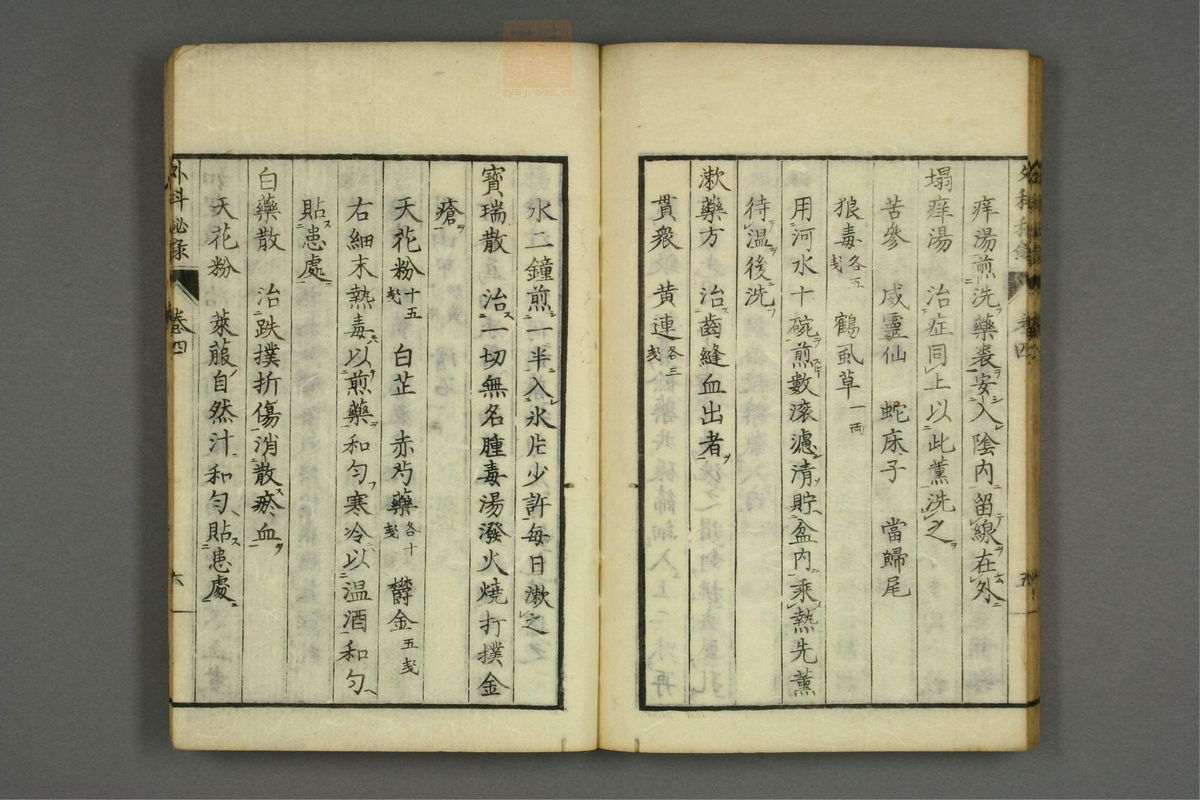 痒湯煎洗藥裹安入陰内留線在外
塌痒湯 治症同上以此薰洗之
苦參 威靈仙 蛇床子 當歸尾
狼毒各五戔 鶴虱草一両
用河水十碗煎數滚濾清貯盆内乘熱先薰
待温後洗
漱藥方 治齒縫血出者
貫衆 黄連各三戔
水二鐘煎一半入氷片少許每日漱之
寳瑞散 治一切無名腫毒湯潑火燒打撲金
瘡
天花粉十五戔 白芷 赤芍藥各十戔 欝金五戔
右細末熱毒以煎藥和勻寒冷以温酒和勻
貼患處
白藥散 治跌撲折傷消散瘀血
天花粉 萊菔自然汁和勻貼患處
外科秘录 卷四 六